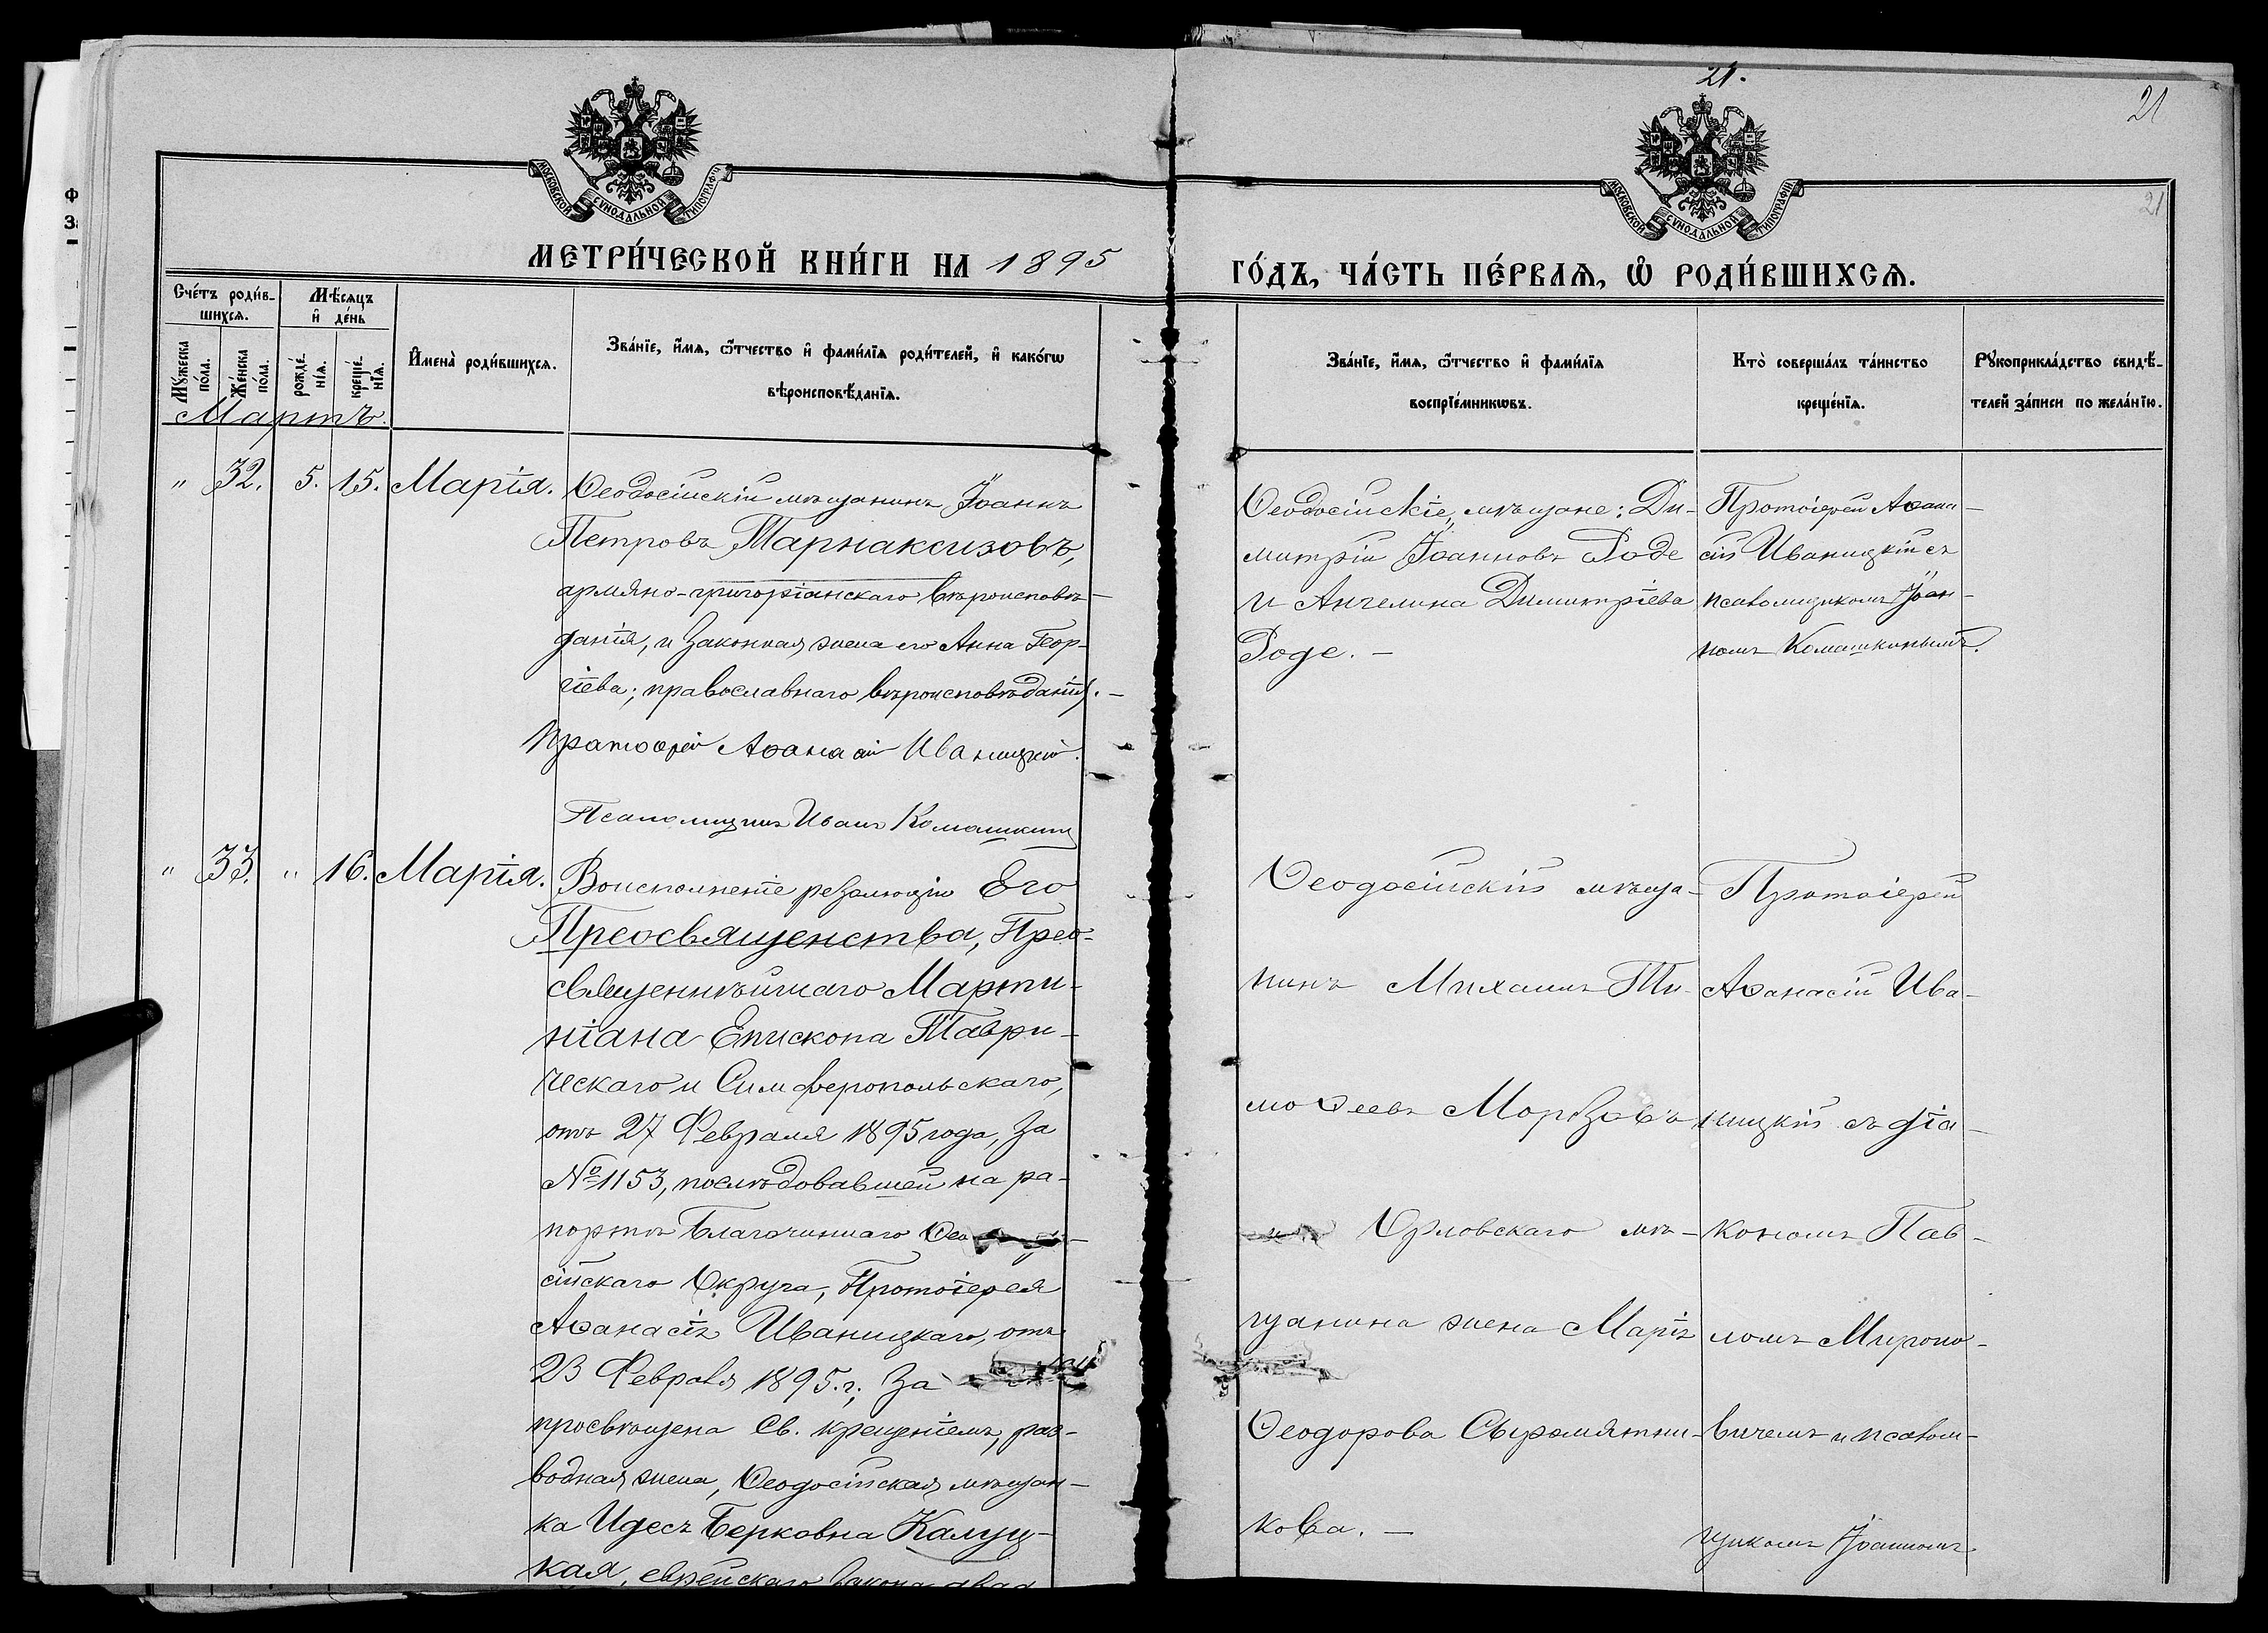 21.
21
21
МОСКОВСКОЙ СѴНОДАЛЬНОЙ ТИПОГРАФІИ
МОСКОВСКОЙ СѴНОДАЛЬНОЙ ТИПОГРАФІИ
МЕТРИ́ЧЕСКОЙ КНИ́ГИ НА 1895
ГО́ДЪ, ЧА́СТЬ ПЕ́РВАѦ, Ѡ РОДИ́ВШИХСѦ.
Сче́тъ роди́в-
шихсѧ.
Мꙋжеска по́ла.
Же́нска по́ла.
Мѣ́сѧцъ
и҆ де́нь
рожде́-
нїѧ.
креще́-
нїѧ.
И҆мена̀ роди́вшихсѧ.
Зва́нїе, и҆́мѧ, ѻ҆́тчество и҆ фами́лїѧ роди́телей, и҆ како́гѡ
вѣроисповѣ́данїѧ.
Зва́нїе, и҆́мѧ, ѻ҆́тчество и҆ фами́лїѧ
воспрїе́мникѡвъ.
Кто̀ соверша́лъ та́инство
креще́нїѧ.
Рꙋкоприкла́дство свидѣ́-
телей за́писи по жела́нїю.
Мартъ.
" 32. 5. 15. Марія.
Ѳеодосійскій мѣщанинъ Іоаннъ
Петровъ Тарнаксизовъ,
армяно-григоріанскаго вѣроисповѣ-
данія, и законная жена его Анна Геор-
гіева; православнаго вѣроисповѣданія. -
Протоіерей Аѳанасій Иваницкій.
Псаломщикъ Иванъ Комашкинъ
Ѳеодосійскіе мѣщане: Ди-
митрій Іоанновъ Роде
и Ангелина Димитріева
Роде. -
Протоіерей Аѳана-
сій Иваницкій съ
псаломщикомъ Іоан-
номъ Комашкинымъ.
" 33. " 16. Марія.
Во исполненіе резолюціи Его
Преосвященства, Прео-
священнѣйшаго Марти-
ніана Епископа Таври-
ческаго и Симферопольскаго,
отъ 27 Февраля 1895 года, за
№ 1153, послѣдовавшей на ра-
портѣ Благочиннаго Ѳео
сійскаго Округа, Протоіерея
Аѳанасія Иваницкаго, отъ
23 Февраля 1895 г., за
просвѣщена Св. крещеніемъ, раз-
водная жена, Ѳеодосійская мѣщан-
ка Идесъ Берковна Калуц-
кая, еврейскаго закона, двад
Ѳеодосійскій мѣща-
нинъ Михаилъ Ти-
моѳеевъ Морозовъ
и Орловскаго мѣ-
щанина жена Марія
Ѳеодорова Сыромятни-
кова. -
Протоіерей
Аѳанасій Ива-
ницкій съ діа-
кономъ Пав-
ломъ Миропо-
вичемъ и псалом-
щикомъ Іоанномъ